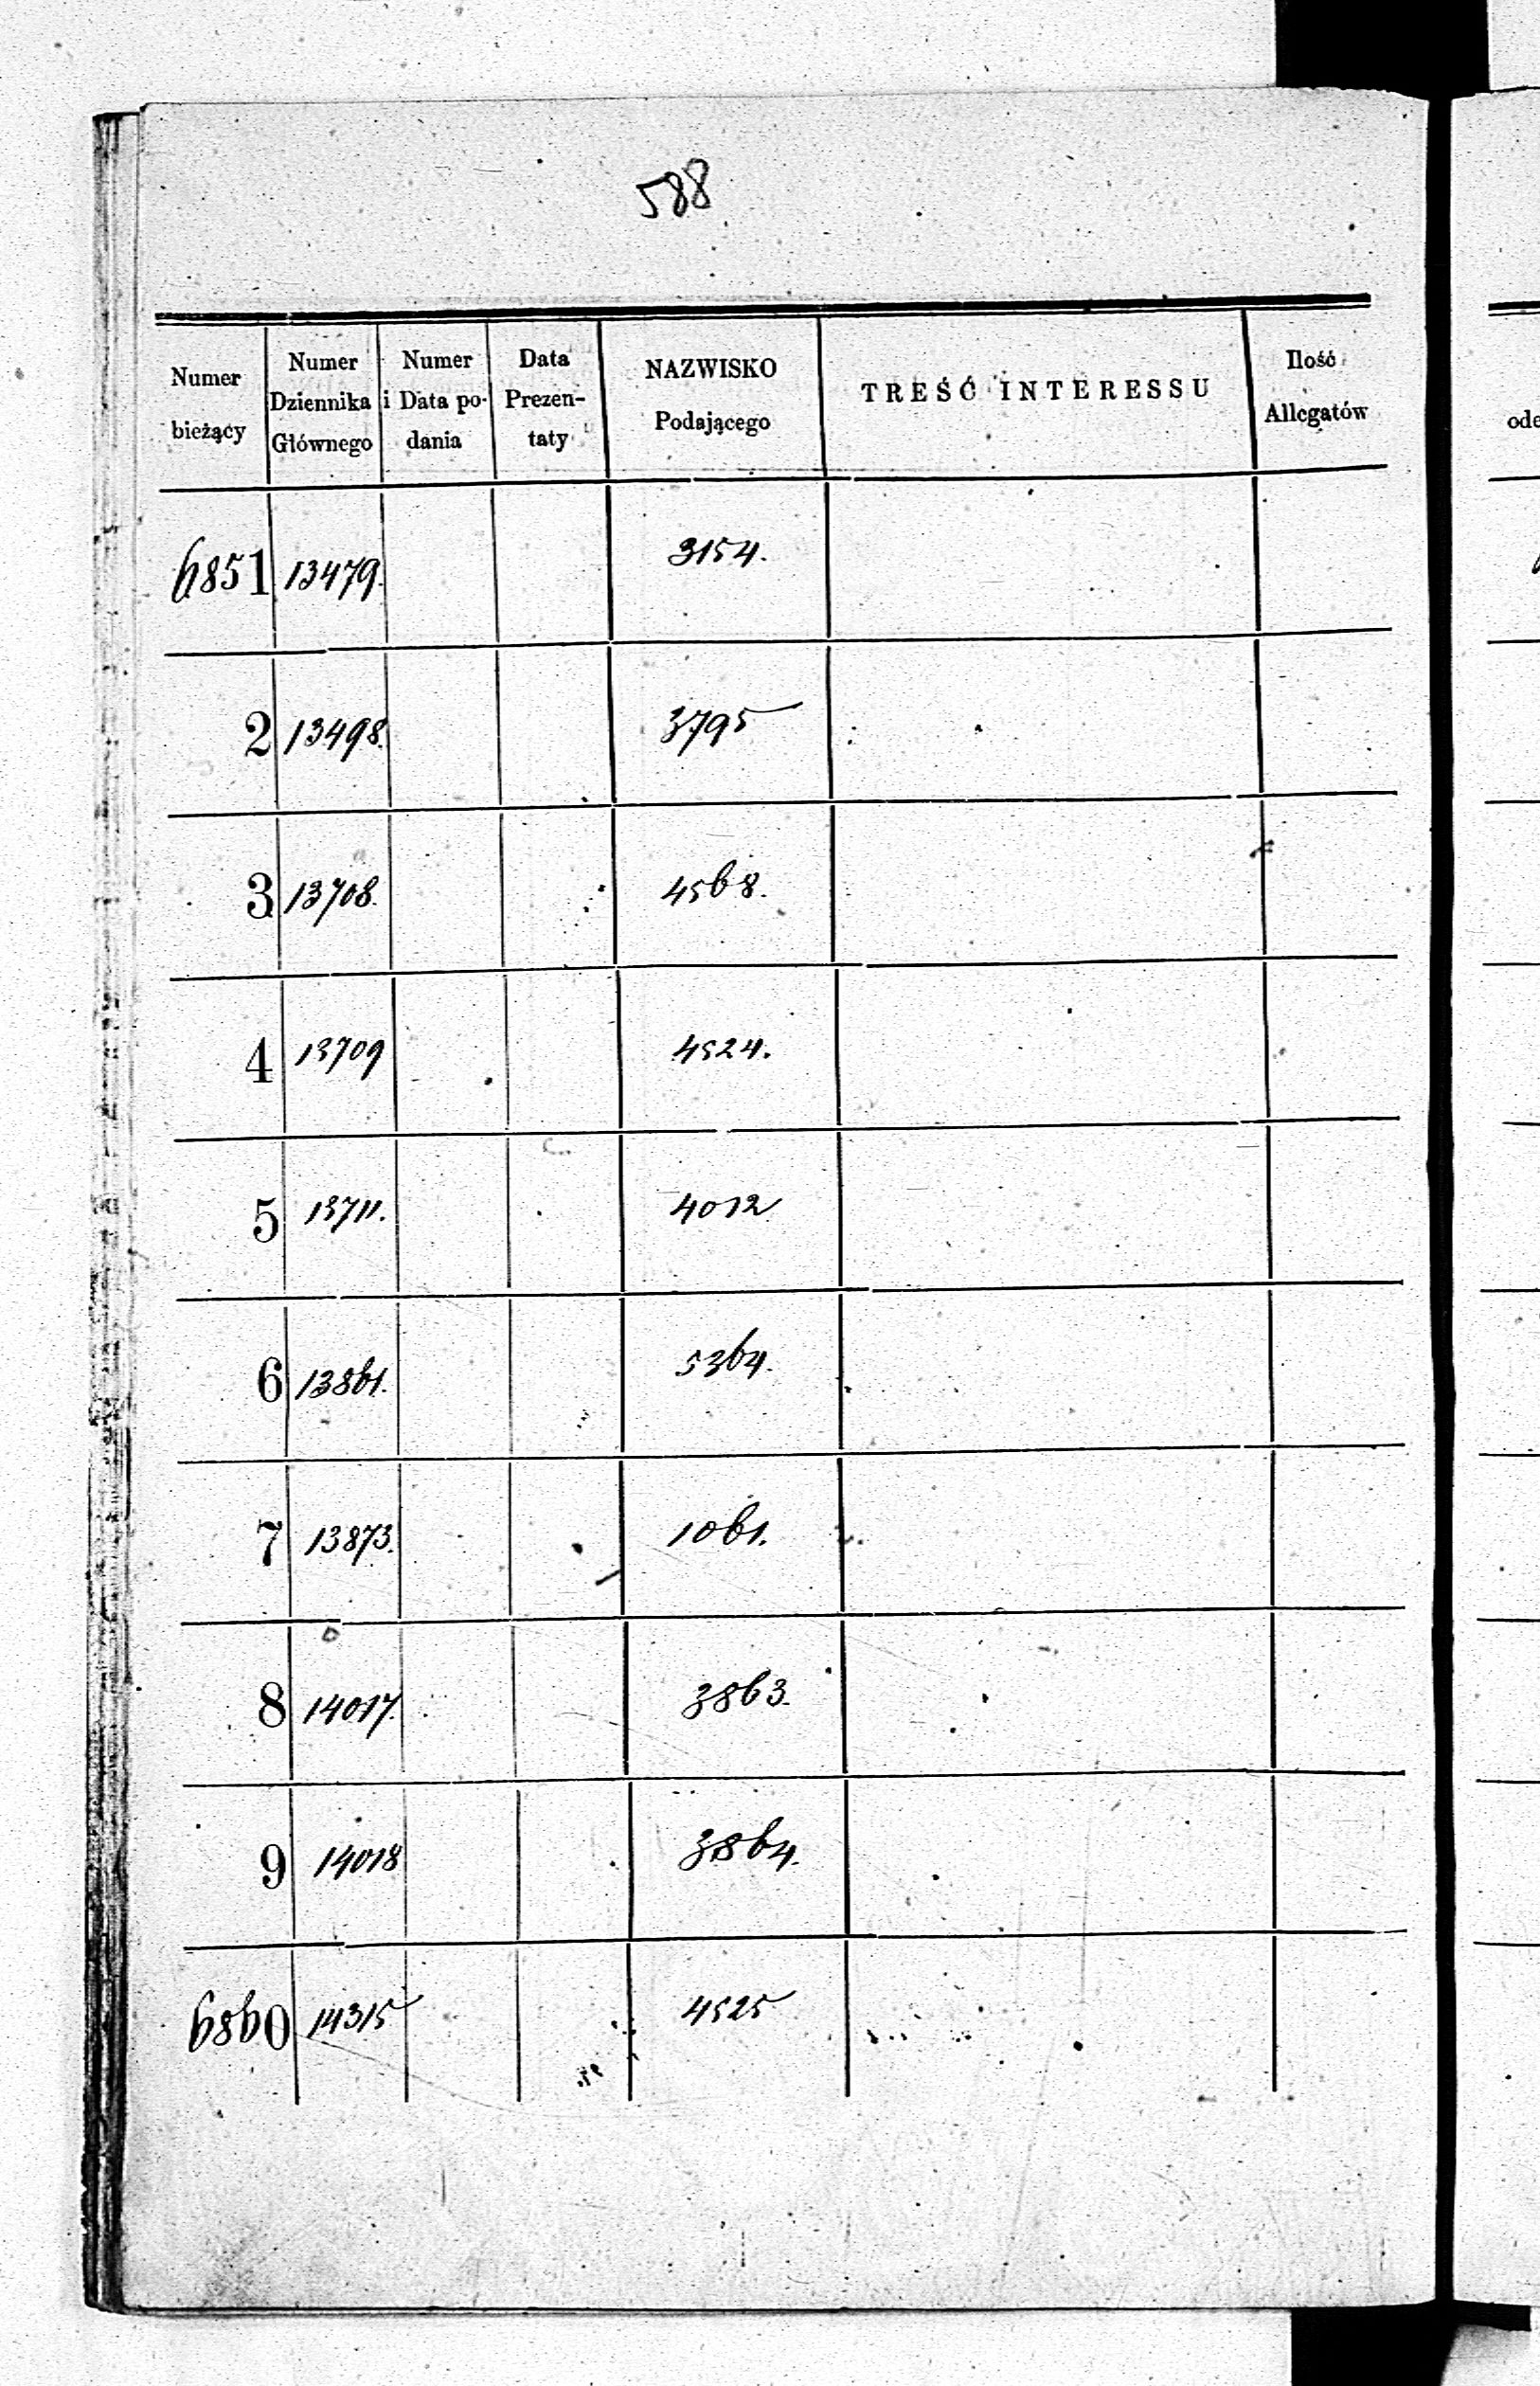 588
Numer bieżący | Numer Dziennika Głównego | Numer i Data podania | Data Prezentaty | NAZWISKO Podającego | TREŚĆ INTERESSU | Ilość Allegatów
6851 13479. 3154.
2 13498. 3795
3 13708. 4568.
4 13709 4524.
5 13711. 4012
6 13861. 5364.
7 13873. 1061.
8 14017. 3863.
9 14018 3864.
6860 14315 4525